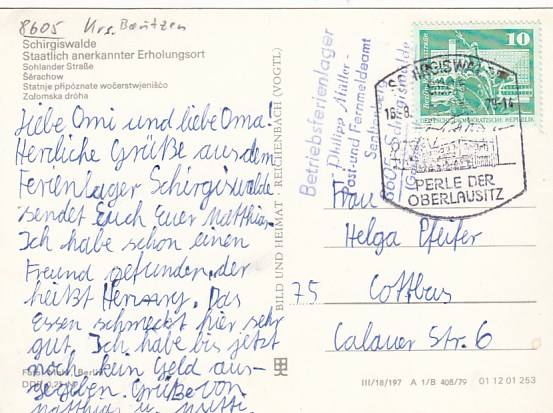 8605 Krs. Bautzen
Schirgiswalde
Staatlich anerkannter Erholungsort
Sohlander Straße
Šěrachow
Statnje připóznate wočerstwjenišćo
Załomska dróha
Liebe Omi und liebe Oma!
Herzliche Grüße aus dem
Ferienlager Schirgiswalde
sendet Euch Euer Matthias.
Ich habe schon einen
Freund gefunden, der
heißt Henry. Das
Essen schmeckt hier sehr
gut. Ich habe bis jetzt
noch kein Geld aus-
gegeben. Grüße von
Matthias u. Mutti
Berlin
DDR
BILD UND HEIMAT REICHENBACH (VOGTL)
Betriebsferienlager
"Philipp Müller"
Post- und Fernmeldeamt
Senftenberg
8605 Schirgiswalde
10
DEUTSCHE DEMOKRATISCHE REPUBLIK
SCHIRGISWALDE
16.-8. 79-14
PERLE DER
OBERLAUSITZ
Frau
Helga Pfeifer
75 Cottbus
Calauer Str. 6
III/18/197 A 1/B 408/79 01 12 01 253